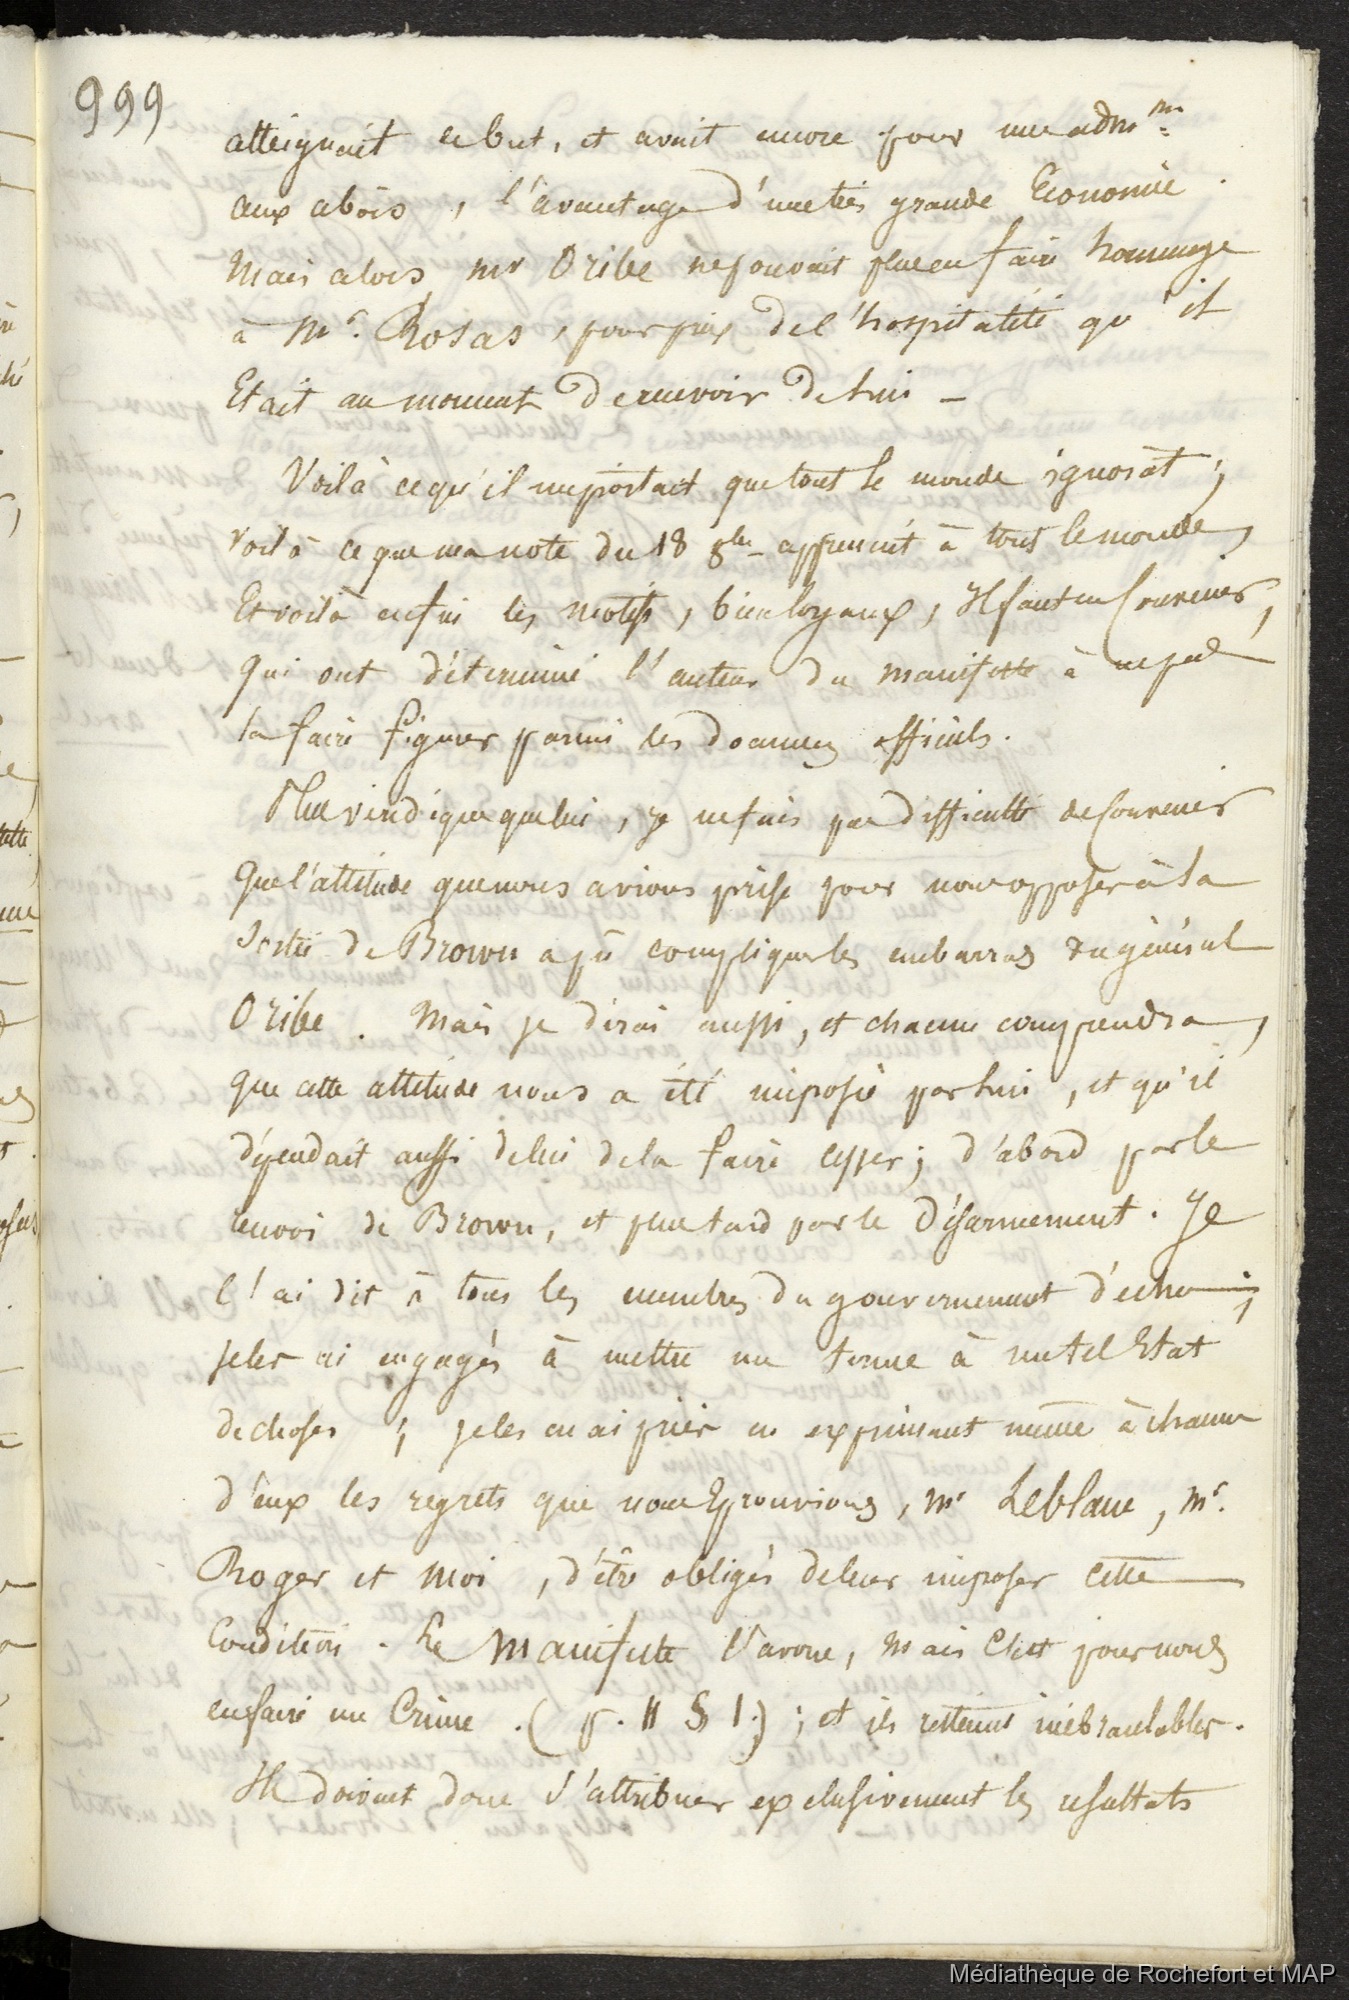 999
atteignait ce but, et avait encore pour une adm.on
aux abois, l'avantage d'une très grande Économie.
Mais alors, mr Oribe ne pouvait plus en faire hommage
à Mr. Rosas, pour prix de l'hospitalité qu'il
Etait au moment de recevoir de lui -
Voilà ce qu'il importait que tout le monde ignorât;
voilà ce que ma note du 18 8bre apprenait à tout le monde,
Et voilà enfin les motifs, bien loyaux, Il faut en Convenir,
qui ont déterminé l'auteur du manifeste à ne pas
la faire figurer parmi les documens officiels.
Plus véridique que lui, je ne fais pas difficulté de Convenir
Que l'attitude que nous avions prise pour nous opposer à la
Sortie de Brown a pû compliquer les embarras du général
Oribe. Mais je dirai aussi, et chacun comprendra,
que cette attitude nous a été imposée par lui, et qu'il
dépendait aussi de lui de la faire cesser; d'abord par le
renvoi de Brown, et plus tard par le Désarmement. Je
l'ai dit à tous les membres du gouvernement déchu;
je les ai engagés à mettre un terme à un tel Etat
de choses; je les en ai priés en exprimant même à chacun
d'eux les regrets que nous Eprouvions, Mr Leblanc, Mr.
Roger et Moi, d'être obligés de leur imposer cette
Condition. Le Manifeste l'avoue, Mais C'est pour nous
en faire un Crime. (p. 11 § 1.); et ils restèrent inébranlables.
Ils doivent donc s'attribuer exclusivement les résultats
Médiathèque de Rochefort et MAP